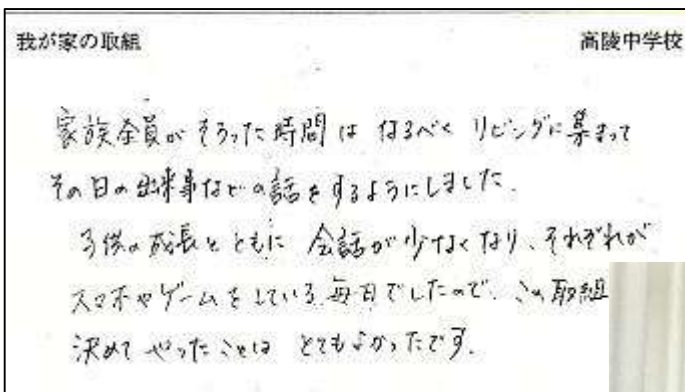 我が家の取組 高陵中学校
家族全員がそろった時間は なるべく リビングに集まって
その日の出来事などの話をするようにしました.
子供の成長とともに 会話が少なくなり、それぞれが
スマホやゲームをしている毎日でしたので、この取組
決めて やったことは とてもよかったです.